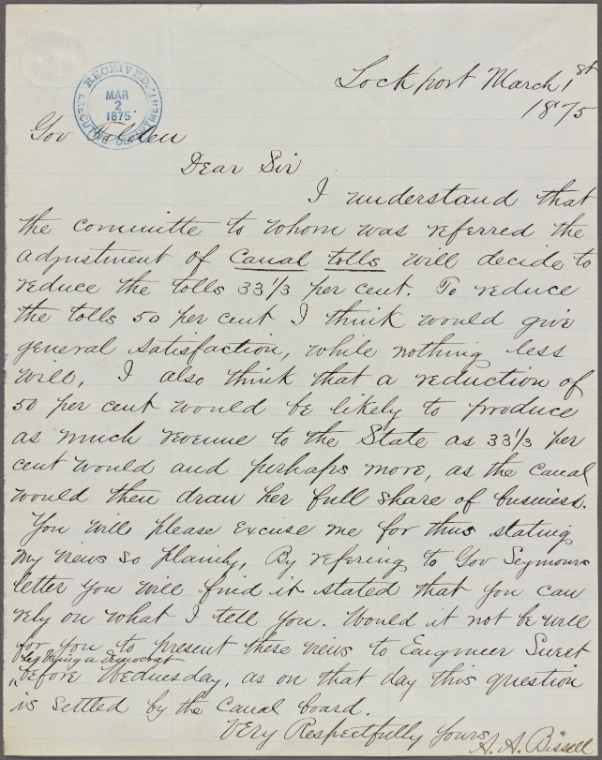 Lockport March 1st
1875
RECEIVED.
MAR
2
1875
EXECUTIVE DEPARTMENT
Gov Tilden
Dear Sir
I understand that
the committe to whom was referred the
adjustment of Canal tolls will decide to
reduce the tolls 33 1/3 per cent. To reduce
the tolls 50 per cent I think would give
general satisfaction, while nothing less
will, I also think that a reduction of
50 per cent would be likely to produce
as much revenue to the State as 33 1/3 per
cent would and perhaps more, as the Canal
would then draw her full share of business.
You will please excuse me for thus stating
my views so plainly, By refering to Gov Seymours
letter you will find it stated that you can
rely on what I tell you. Would it not be well
for you to present these views to Engineer Sweet
he being a Democrat
before Wednesday, as on that day this question
is settled by the Canal board.
Very Respectfully Yours
A. A. Bissell